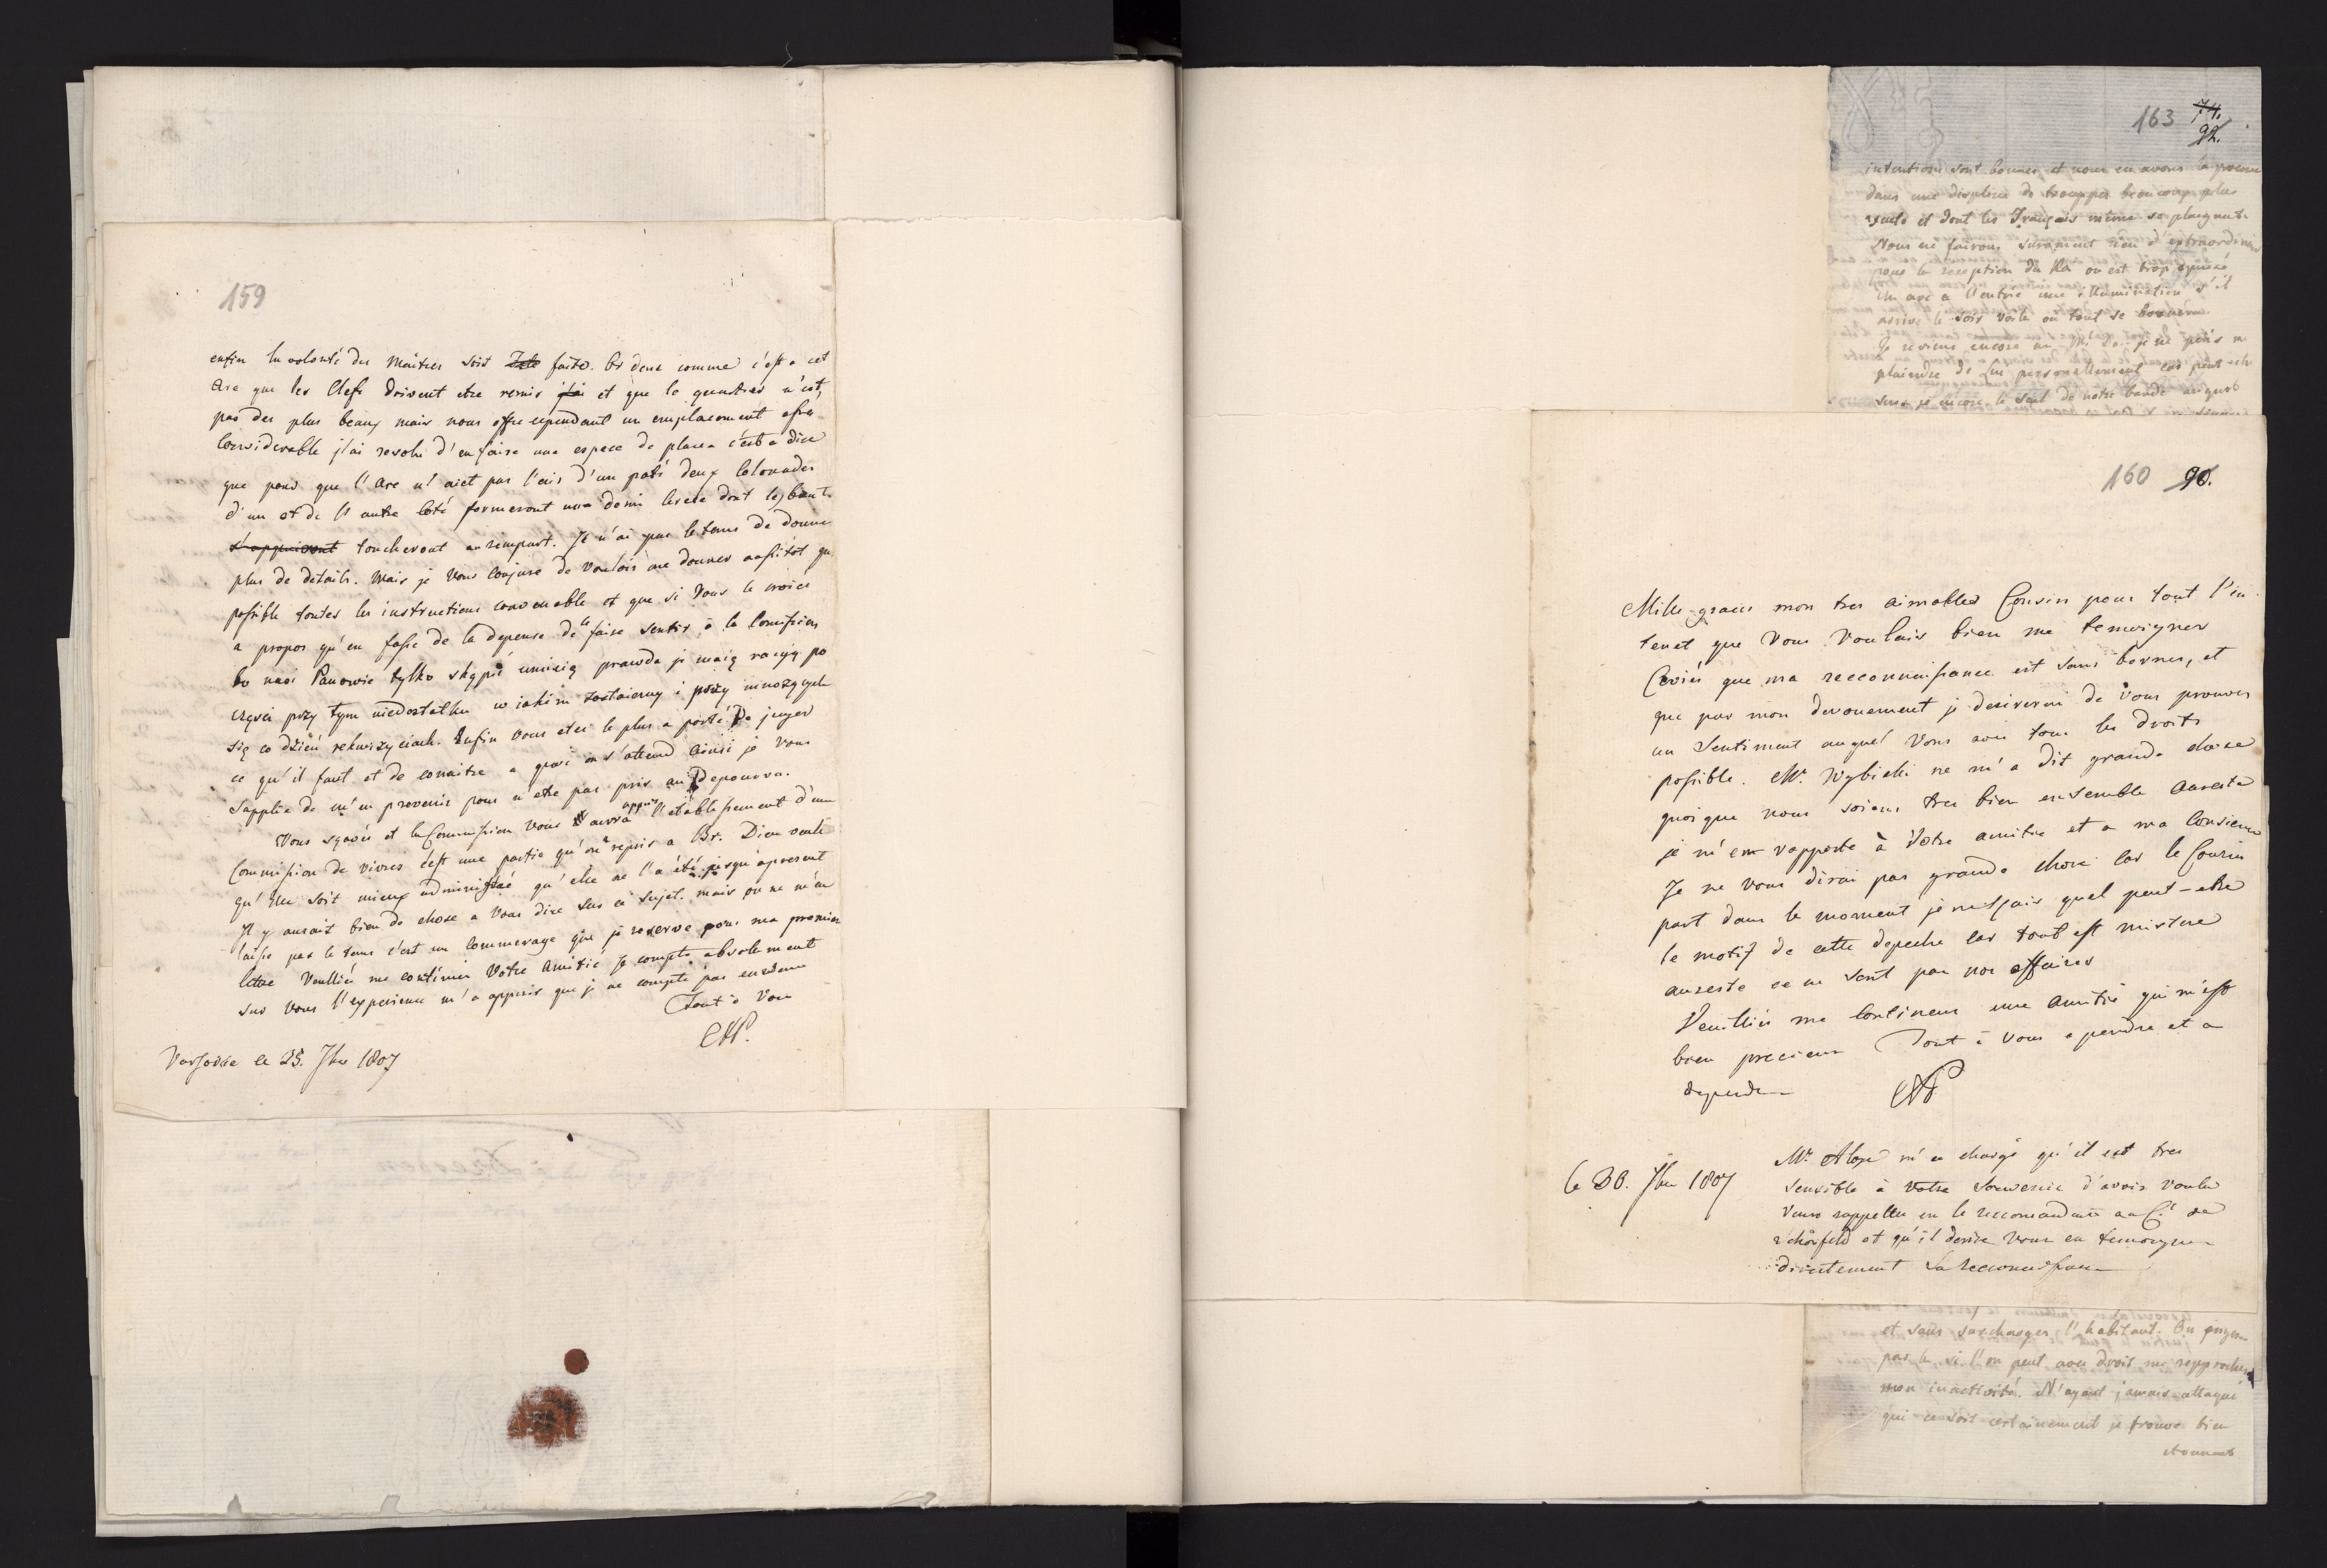 159
enfin la volonté des Maitres soit faite. Or donc comme c'est a cet
Arc que les Clefs doivent etre remis et que le quartier n'est
pas des plus beaux mais nous offre cependant un emplacement assez
Considerable j'ai resolu d'en faire une espece de place c'est a dire
que pour que l'Arc n'aiet pas l'air d'un paté deux Colonnades
d'un et de l'autre coté formeront une demi Cercle dont les bouts
s'appuiront toucheront au rempart. Je n'ai pas le tems de donner
plus de details. Mais je Vous Conjure de Vouloir me donner aussitot que
possible toutes les instructions convenable et que si Vous le croiés
a propos qu'on fasse de la depense de le faire sentir à la Comission
bo nasi Panowie tylko skąpić umieią prawda że maią racyą po
części przy tym niedostatku w iakim zostaiemy i przy mnożących
się co dzień rekwizyciach. Enfin vous etes le plus a porté de juger
ce qu'il faut et de conaitre a quoi on s'attend ainsi je Vous
supplie de m'en prevenir pour n'etre pas pris au depourvu.
Vous sçavés et la Commission Vous aura appris l'etablissement d'une
Commission de vivres c'est une partie qu'on a repris a Br. Dieu veule
qu'elle soit mieux administrée qu'elle ne l'a été jusqu'apresent
Il y aurait bien de chose a Vous dire sur ce sujet. mais on ne m'en
laisse pas le tems c'est un Commerage que je reserve pour ma premiere
lettre Veuillés me continuer Votre Amitié Je compte absolument
sur Vous l'experience m'a appris que je ne compte pas en vain
Tout à Vous
Varsovie ce 25. 7bre 1807
163 74.
92.
intentions sont bonnes et nous en avons la preuve
dans une displine de trouppes beaucoup plus
exacte et dont les Français meme se plaignent.
Nous ne fairons surement rien d'extraordinaire
pour la reception du Roi on est trop epuisé
Un arc a l'entrée une illumination s'il
arrive le soir voila ou tout se bornera.
Je reviens encore au je ne puis me
plaindre de Lui personellement car peut etre
suis je encore le seul de notre bande auquel
160 90.
Mille graces mon tres aimables Cousin pour tout l'in
teret que Vous Voulais bien me temoigner
Croiés que ma reconnaissance est sans bornes, et
que par mon devouement je desirerai de Vous prouver
un Sentiment auquel Vous avés tous les droits
possible. Mr. Wybicki ne m'a dit grande chose
quoique nous soions tres bien ensemble aureste
je m'en rapporte à Votre amitié et a ma Consience
Je ne vous dirai pas grande chose Car le Courier
part dans le moment je ne sçais quel peut-etre
le motif de cette depeche Car tout est mistere
aureste ce ne sont pas nos affaires
Veuilliés me Continuer une Amitié qui m'est
bien precieuse Tout à Vous a pendre et a
dependre
le 30. 7bre 1807
Mr. m'a chargé qu'il est tres
sensible à Votre Souvenir d'avoir voulu
Vous rappeller en le recomandant au Ct. de
Schönfeld et qu'il desire Vous en temoigner
directement Sa reconnaissance
et sans surcharger l'habitant. On jugera
par la si l'on peut avec droit me repprocher
mon inactivité. N'ayant jamais attaqué
qui ce soit certainement je trouve bien
etonnant